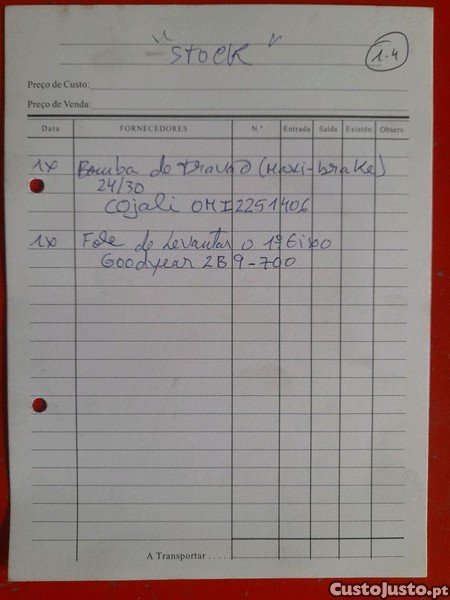 "Stock"
1-4
Preço de Custo:
Preço de Venda:
Data FORNECEDORES N.º Entrada Saída Existên. Observ.
1x Bomba de travão (Maxi-brake)
24/30
Cojali OMI2251406
1x Fole de Levantar o 1º Eixo
Goodyear 2B9-700
A Transportar . . . .
CustoJusto.pt